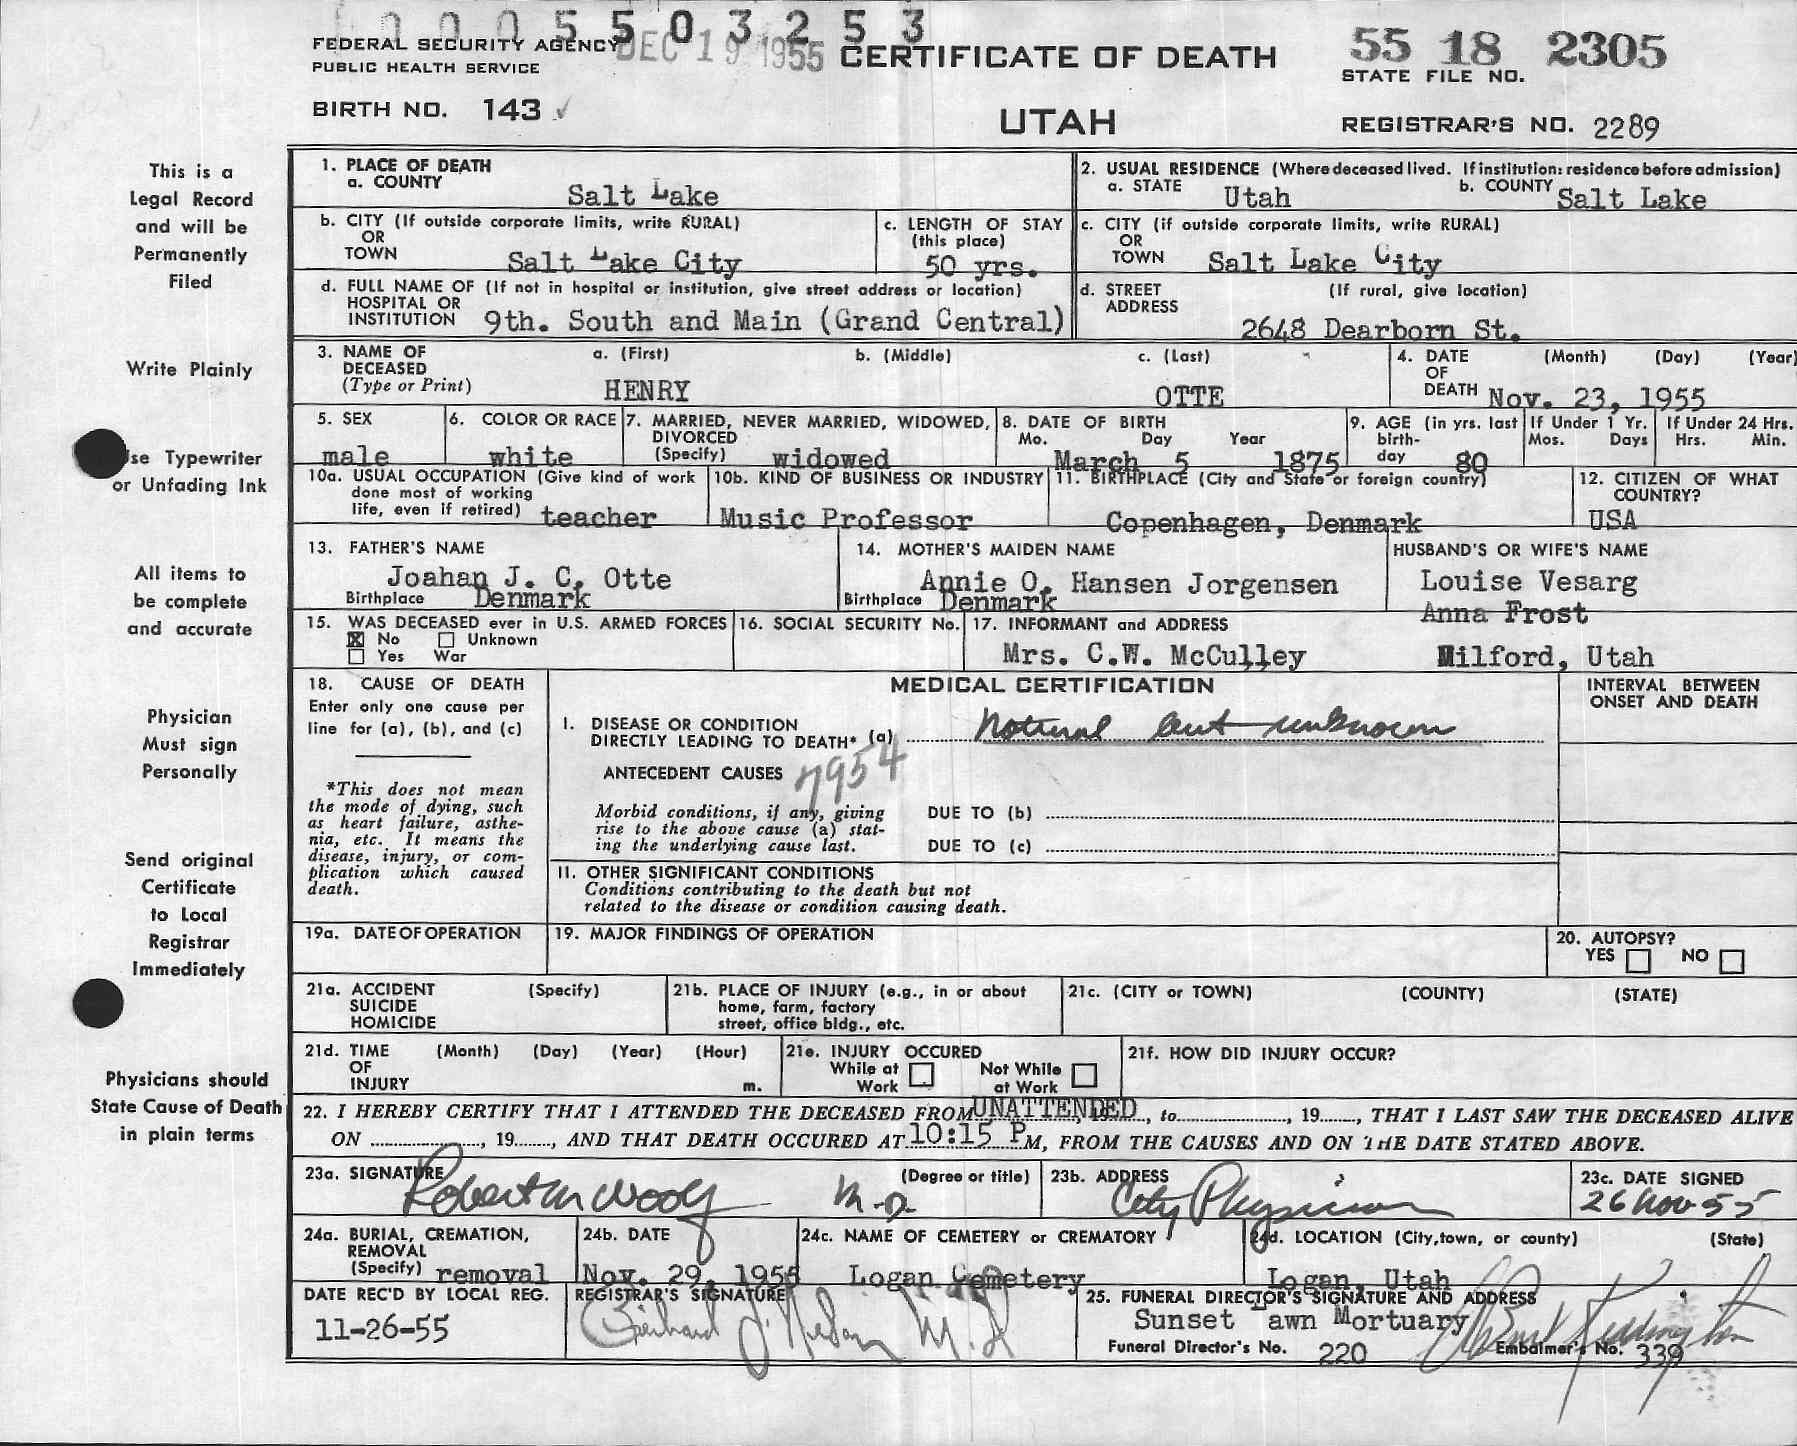 0005503253
FEDERAL SECURITY AGENCY DEC 19 1955 CERTIFICATE OF DEATH 55 18 2305
PUBLIC HEALTH SERVICE STATE FILE NO.
BIRTH NO. 143 UTAH REGISTRAR'S NO. 2289
This is a
Legal Record
and will be
Permanently
Filed
Write Plainly
Use Typewriter
or Unfading Ink
All items to
be complete
and accurate
Physician
Must sign
Personally
Send original
Certificate
to Local
Registrar
Immediately
Physicians should
State Cause of Death
in plain terms
1. PLACE OF DEATH
a. COUNTY Salt Lake
2. USUAL RESIDENCE (Where deceased lived. If institution: residence before admission)
a. STATE Utah b. COUNTY Salt Lake
b. CITY (If outside corporate limits, write RURAL)
OR
TOWN Salt Lake City
c. LENGTH OF STAY
(this place)
50 yrs.
c. CITY (if outside corporate limits, write RURAL)
OR
TOWN Salt Lake City
d. FULL NAME OF (If not in hospital or institution, give street address or location)
HOSPITAL OR
INSTITUTION 9th. South and Main (Grand Central)
d. STREET (If rural, give location)
ADDRESS
2648 Dearborn St.
3. NAME OF a. (First) b. (Middle) c. (Last)
DECEASED
(Type or Print) HENRY OTTE
4. DATE (Month) (Day) (Year)
OF
DEATH Nov. 23, 1955
5. SEX
male
6. COLOR OR RACE
white
7. MARRIED, NEVER MARRIED, WIDOWED,
DIVORCED
(Specify) widowed
8. DATE OF BIRTH
Mo. Day Year
March 5 1875
9. AGE (in yrs. last
birth-
day 80
If Under 1 Yr.
Mos. Days
If Under 24 Hrs.
Hrs. Min.
10a. USUAL OCCUPATION (Give kind of work
done most of working
life, even if retired) teacher
10b. KIND OF BUSINESS OR INDUSTRY
Music Professor
11. BIRTHPLACE (City and State or foreign country)
Copenhagen, Denmark
12. CITIZEN OF WHAT
COUNTRY?
USA
13. FATHER'S NAME
Joahan J. C. Otte
Birthplace Denmark
14. MOTHER'S MAIDEN NAME
Annie O. Hansen Jorgensen
Birthplace Denmark
HUSBAND'S OR WIFE'S NAME
Louise Vesarg
Anna Frost
15. WAS DECEASED ever in U.S. ARMED FORCES
X No Unknown
Yes War
16. SOCIAL SECURITY No.
17. INFORMANT and ADDRESS
Mrs. C.W. McCulley Milford, Utah
18. CAUSE OF DEATH
Enter only one cause per
line for (a), (b), and (c)
*This does not mean
the mode of dying, such
as heart failure, asthe-
nia, etc. It means the
disease, injury, or com-
plication which caused
death.
MEDICAL CERTIFICATION
INTERVAL BETWEEN
ONSET AND DEATH
I. DISEASE OR CONDITION
DIRECTLY LEADING TO DEATH* (a) Natural but unknown
ANTECEDENT CAUSES 7954
Morbid conditions, if any, giving
rise to the above cause (a) stat-
ing the underlying cause last.
DUE TO (b)
DUE TO (c)
II. OTHER SIGNIFICANT CONDITIONS
Conditions contributing to the death but not
related to the disease or condition causing death.
19a. DATE OF OPERATION
19. MAJOR FINDINGS OF OPERATION
20. AUTOPSY?
YES NO
21a. ACCIDENT (Specify)
SUICIDE
HOMICIDE
21b. PLACE OF INJURY (e.g., in or about
home, farm, factory
street, office bldg., etc.
21c. (CITY or TOWN) (COUNTY) (STATE)
21d. TIME (Month) (Day) (Year) (Hour)
OF
INJURY m.
21e. INJURY OCCURED
While at Not While
Work at Work
21f. HOW DID INJURY OCCUR?
22. I HEREBY CERTIFY THAT I ATTENDED THE DECEASED FROM UNATTENDED, to, 19, THAT I LAST SAW THE DECEASED ALIVE
ON, 19, AND THAT DEATH OCCURED AT 10:15 P M, FROM THE CAUSES AND ON THE DATE STATED ABOVE.
23a. SIGNATURE (Degree or title)
Robert M Woolf M.D.
23b. ADDRESS
City Physician
23c. DATE SIGNED
26 Nov 55
24a. BURIAL, CREMATION,
REMOVAL
(Specify) removal
24b. DATE
Nov. 29, 1955
24c. NAME OF CEMETERY or CREMATORY
Logan Cemetery
24d. LOCATION (City, town, or county) (State)
Logan, Utah
DATE REC'D BY LOCAL REG.
11-26-55
REGISTRAR'S SIGNATURE
M.D.
25. FUNERAL DIRECTOR'S SIGNATURE AND ADDRESS
Sunset awn Mortuary
Funeral Director's No. 220 Embalmer's No. 339